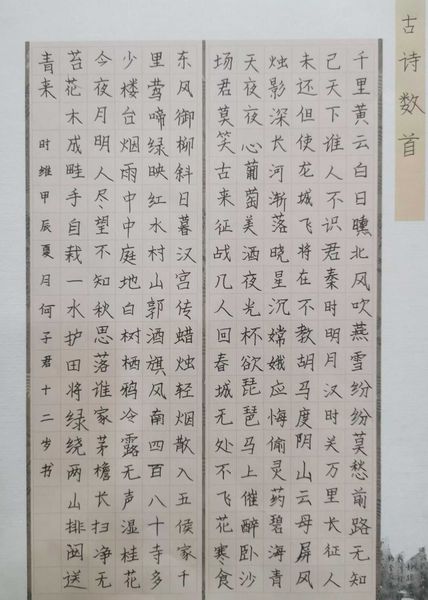 古诗数首
千里黄云白日曛北风吹燕雪纷纷莫愁前路无知
己天下谁人不识君秦时明月汉时关万里长征人
未还但使龙城飞将在不教胡马度阴山云母屏风
烛影深长河渐落晓星沉嫦娥应悔偷灵药碧海青
天夜夜心葡萄美酒夜光杯欲琵琶马上催醉卧沙
场君莫笑古来征战几人回春城无处不飞花寒食
东风御柳斜日暮汉宫传蜡烛轻烟散入五侯家千
里莺啼绿映红水村山郭酒旗风南四百八十寺多
少楼台烟雨中中庭地白树栖鸦冷露无声湿桂花
今夜月明人尽望不知秋思落谁家茅檐长扫净无
苔花木成畦手自栽一水护田将绿绕两山排闼送
青来 时维甲辰夏月何子君十二岁书